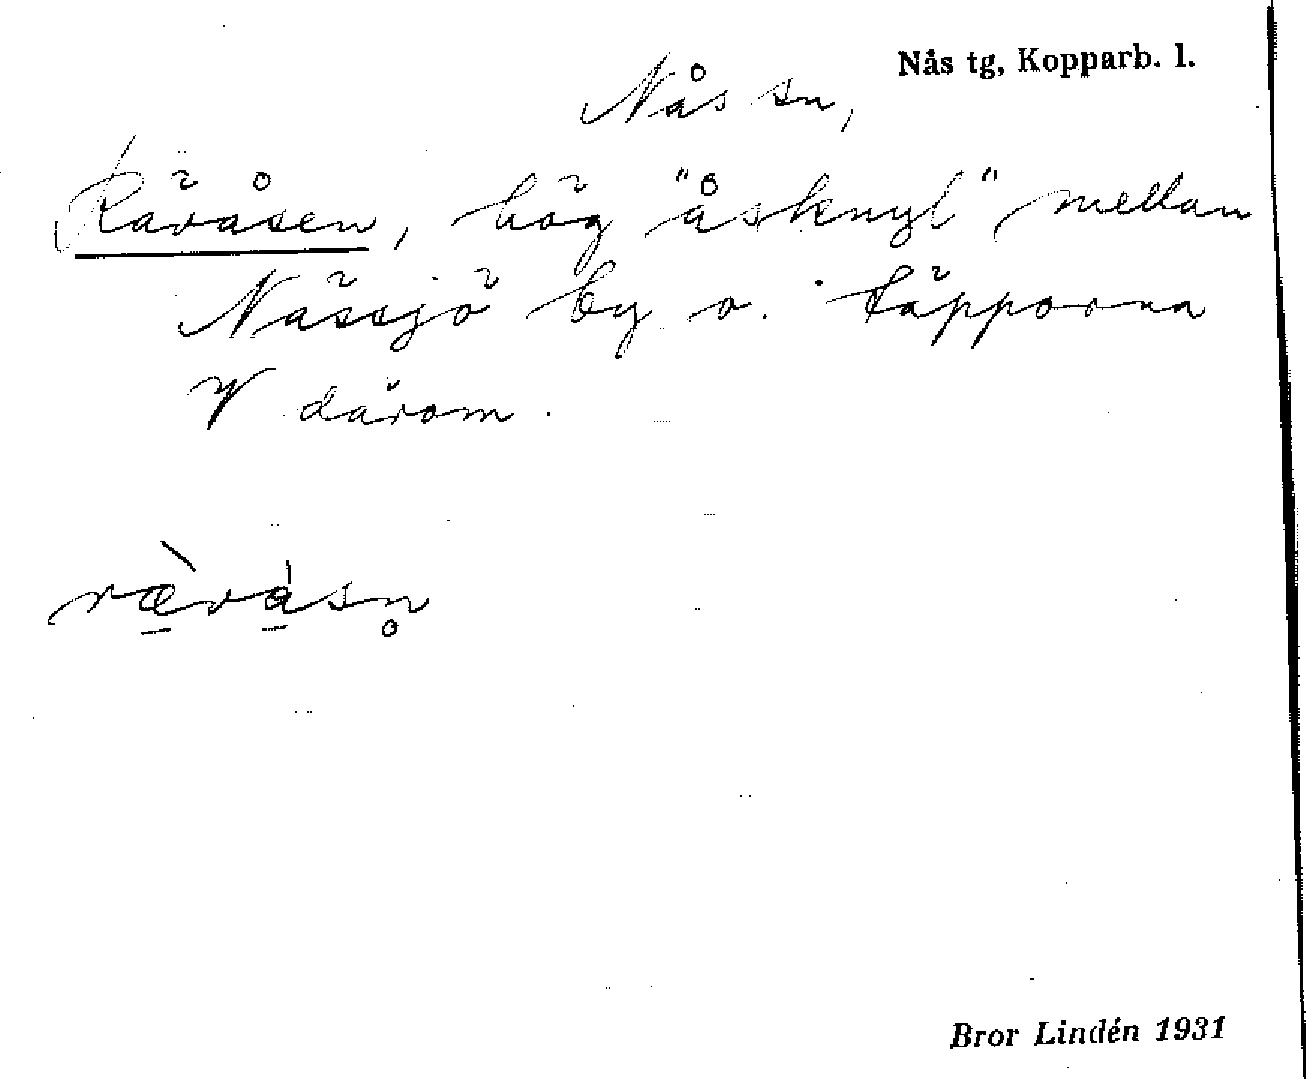 Nås tg, Kopparb. l.
Nås sn,
Rävåsen, hög "åsknyl" mellan
Nässjö by o. täpporna
V därom.
ræ̀vásn̥
Bror Lindén 1931